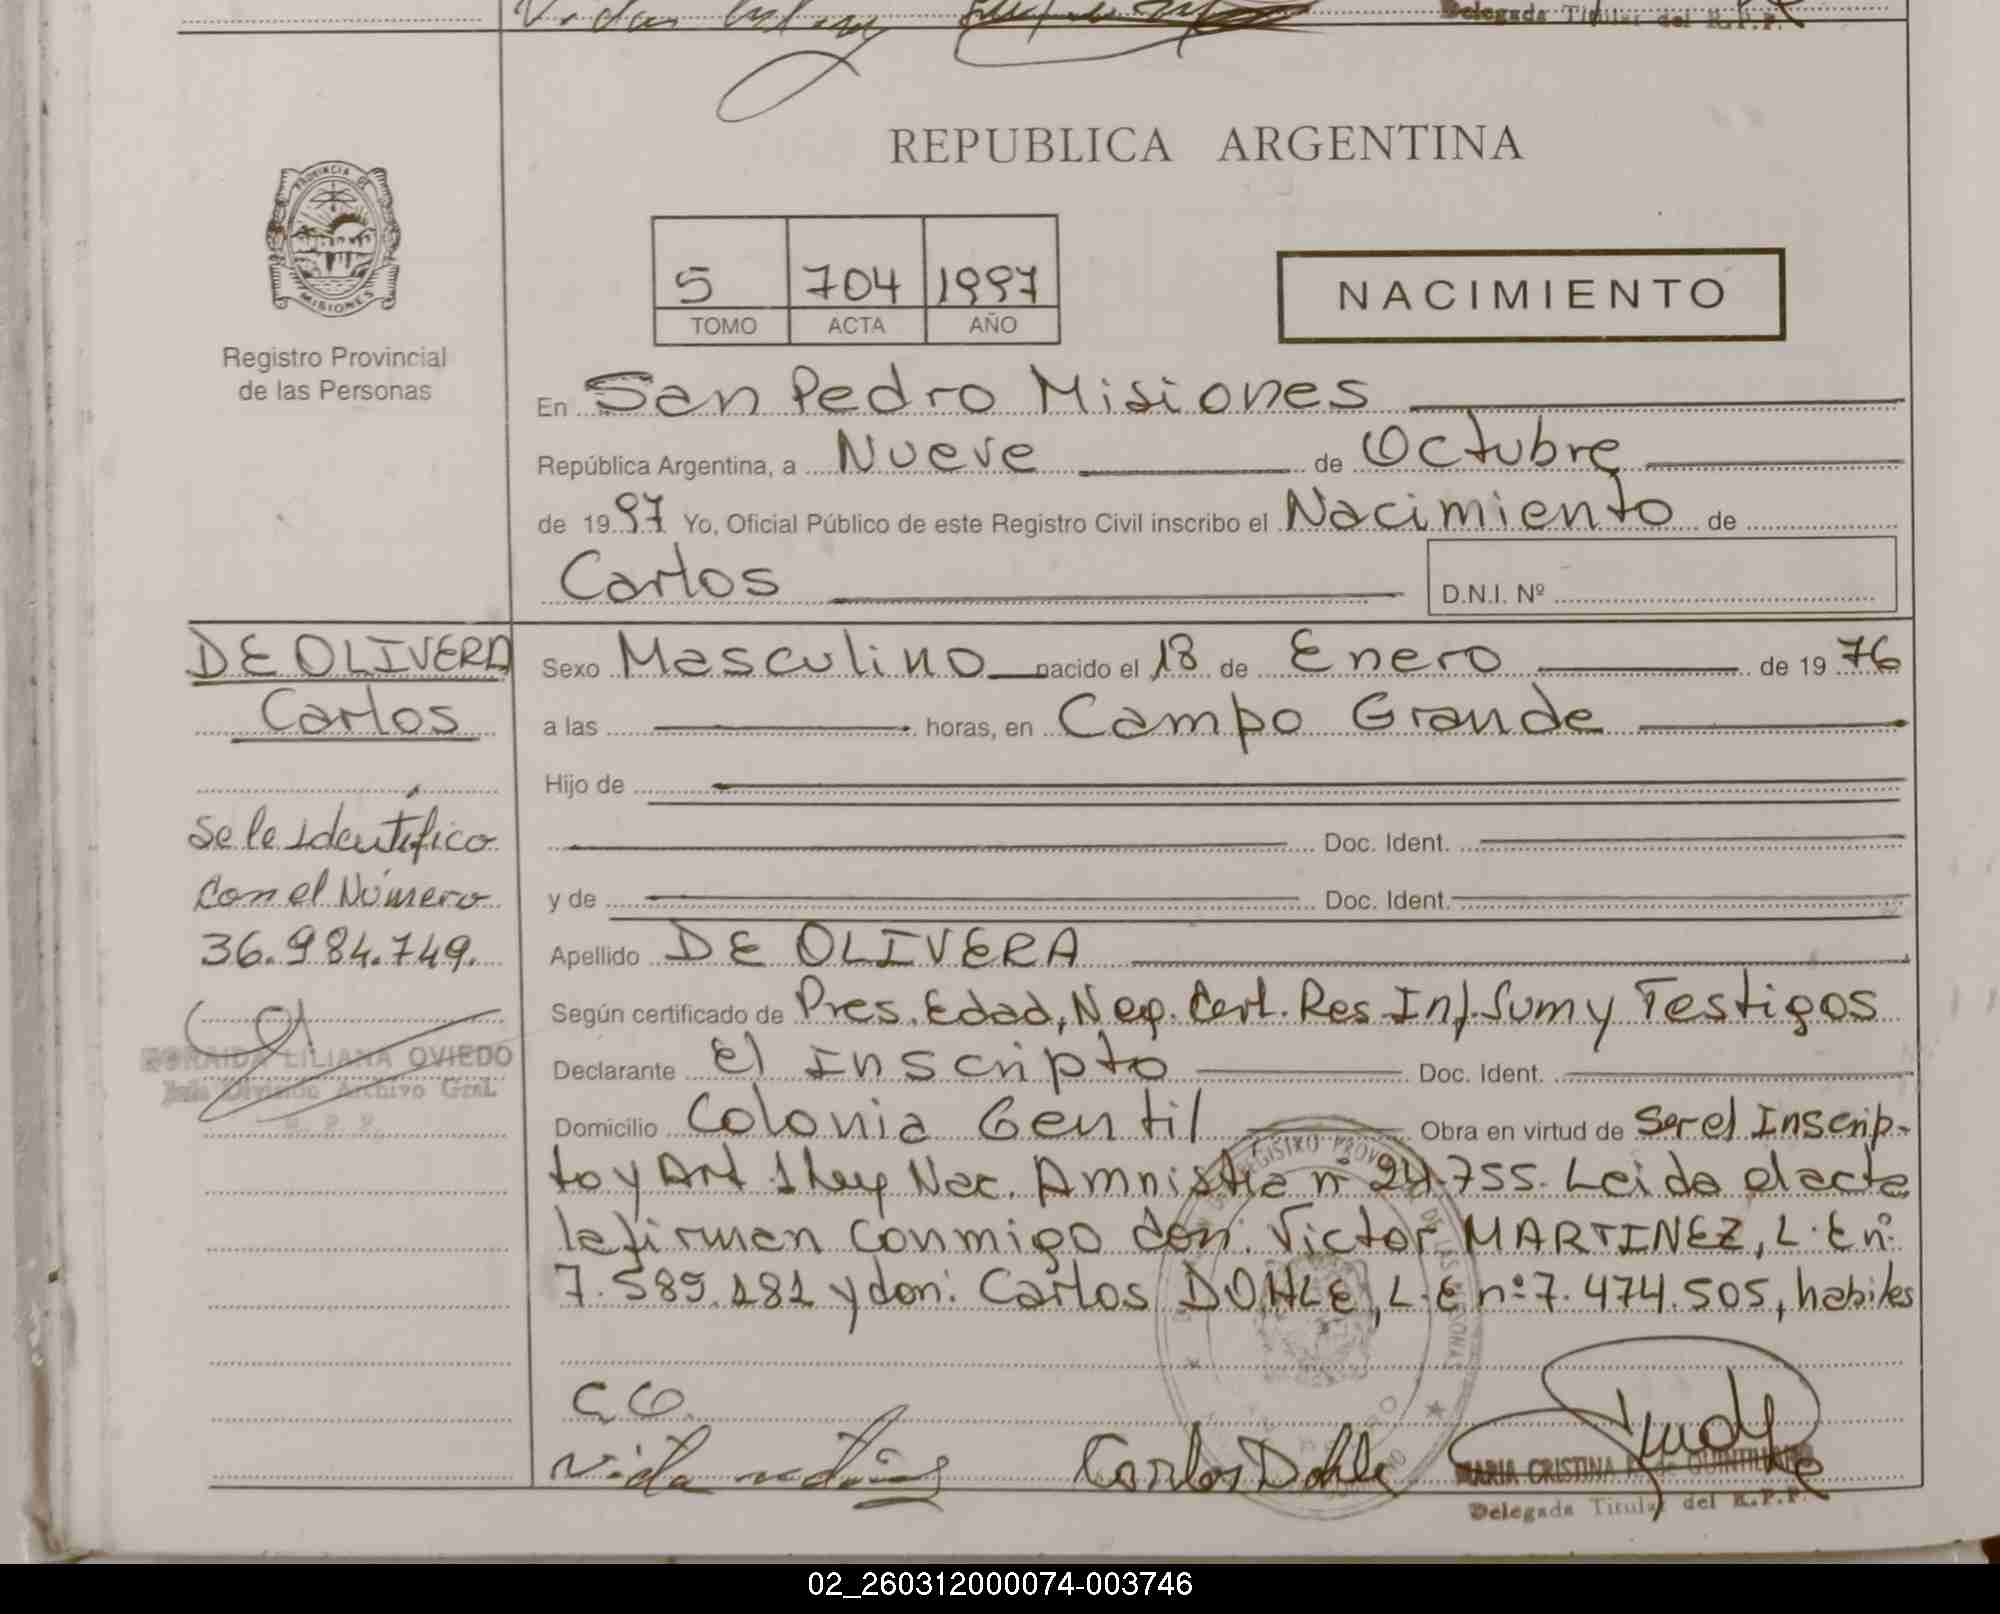 Delegada Titular del R.P.P.
REPUBLICA ARGENTINA
PROVINCIA DE
MISIONES
Registro Provincial
de las Personas
5 704 1997
TOMO ACTA AÑO
NACIMIENTO
En San Pedro Misiones
República Argentina, a Nueve de Octubre
de 1997 Yo, Oficial Público de este Registro Civil inscribo el Nacimiento de
Carlos D.N.I. Nº
DE OLIVERA
Carlos
Se le identífico
con el Número
36.984.749.
LILIANA OVIEDO
Jefe División Archivo Gral.
R. P. P.
Sexo Masculino nacido el 18 de Enero de 1976
a las horas, en Campo Grande
Hijo de
Doc. Ident.
y de Doc. Ident.
Apellido DE OLIVERA
Según certificado de Pres. Edad, Neg. Cert. Res Inf. Sum y Testigos
Declarante El Inscripto Doc. Ident.
Domicilio Colonia Gentil Obra en virtud de Ser el Inscrip-
to y Art. 1 Ley Nac. Amnistia nº 24.755. Leida el acta
la firman conmigo don: Victor MARTINEZ, L.E nº
7.589.181 y don: Carlos DOHLE, L.E nº 7.474.505, habiles
C.O.
Carlos Dohle
MARIA CRISTINA de QUINTILHANO
Delegada Titular del R.P.P.
02_260312000074-003746